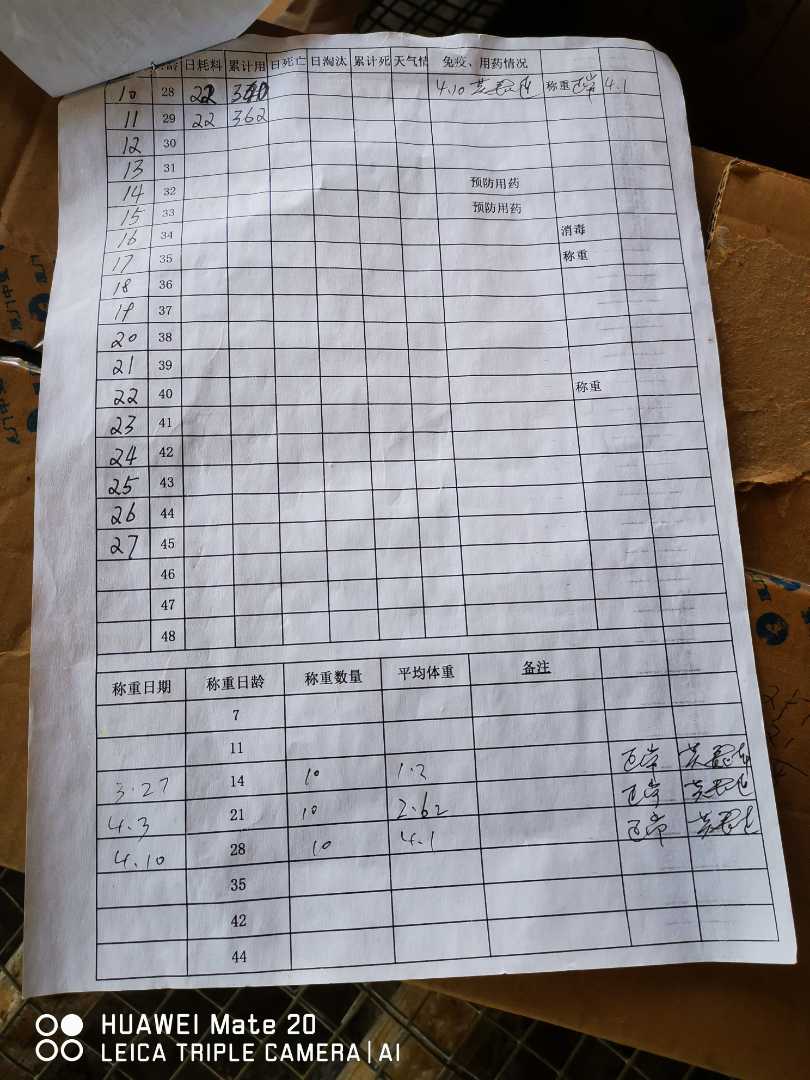 龄 日耗料 累计用 日死亡 日淘汰 累计死 天气情 免疫、用药情况
10 28 22 340 4.10 称重 4.1
11 29 22 362
12 30
13 31
14 32 预防用药
15 33 预防用药
16 34 消毒
17 35 称重
18 36
19 37
20 38
21 39
22 40 称重
23 41
24 42
25 43
26 44
27 45
46
47
48
称重日期 称重日龄 称重数量 平均体重 备注
7
11
3.27 14 10 1.2
4.3 21 10 2.62
4.10 28 10 4.1
35
42
44
HUAWEI Mate 20
LEICA TRIPLE CAMERA | AI